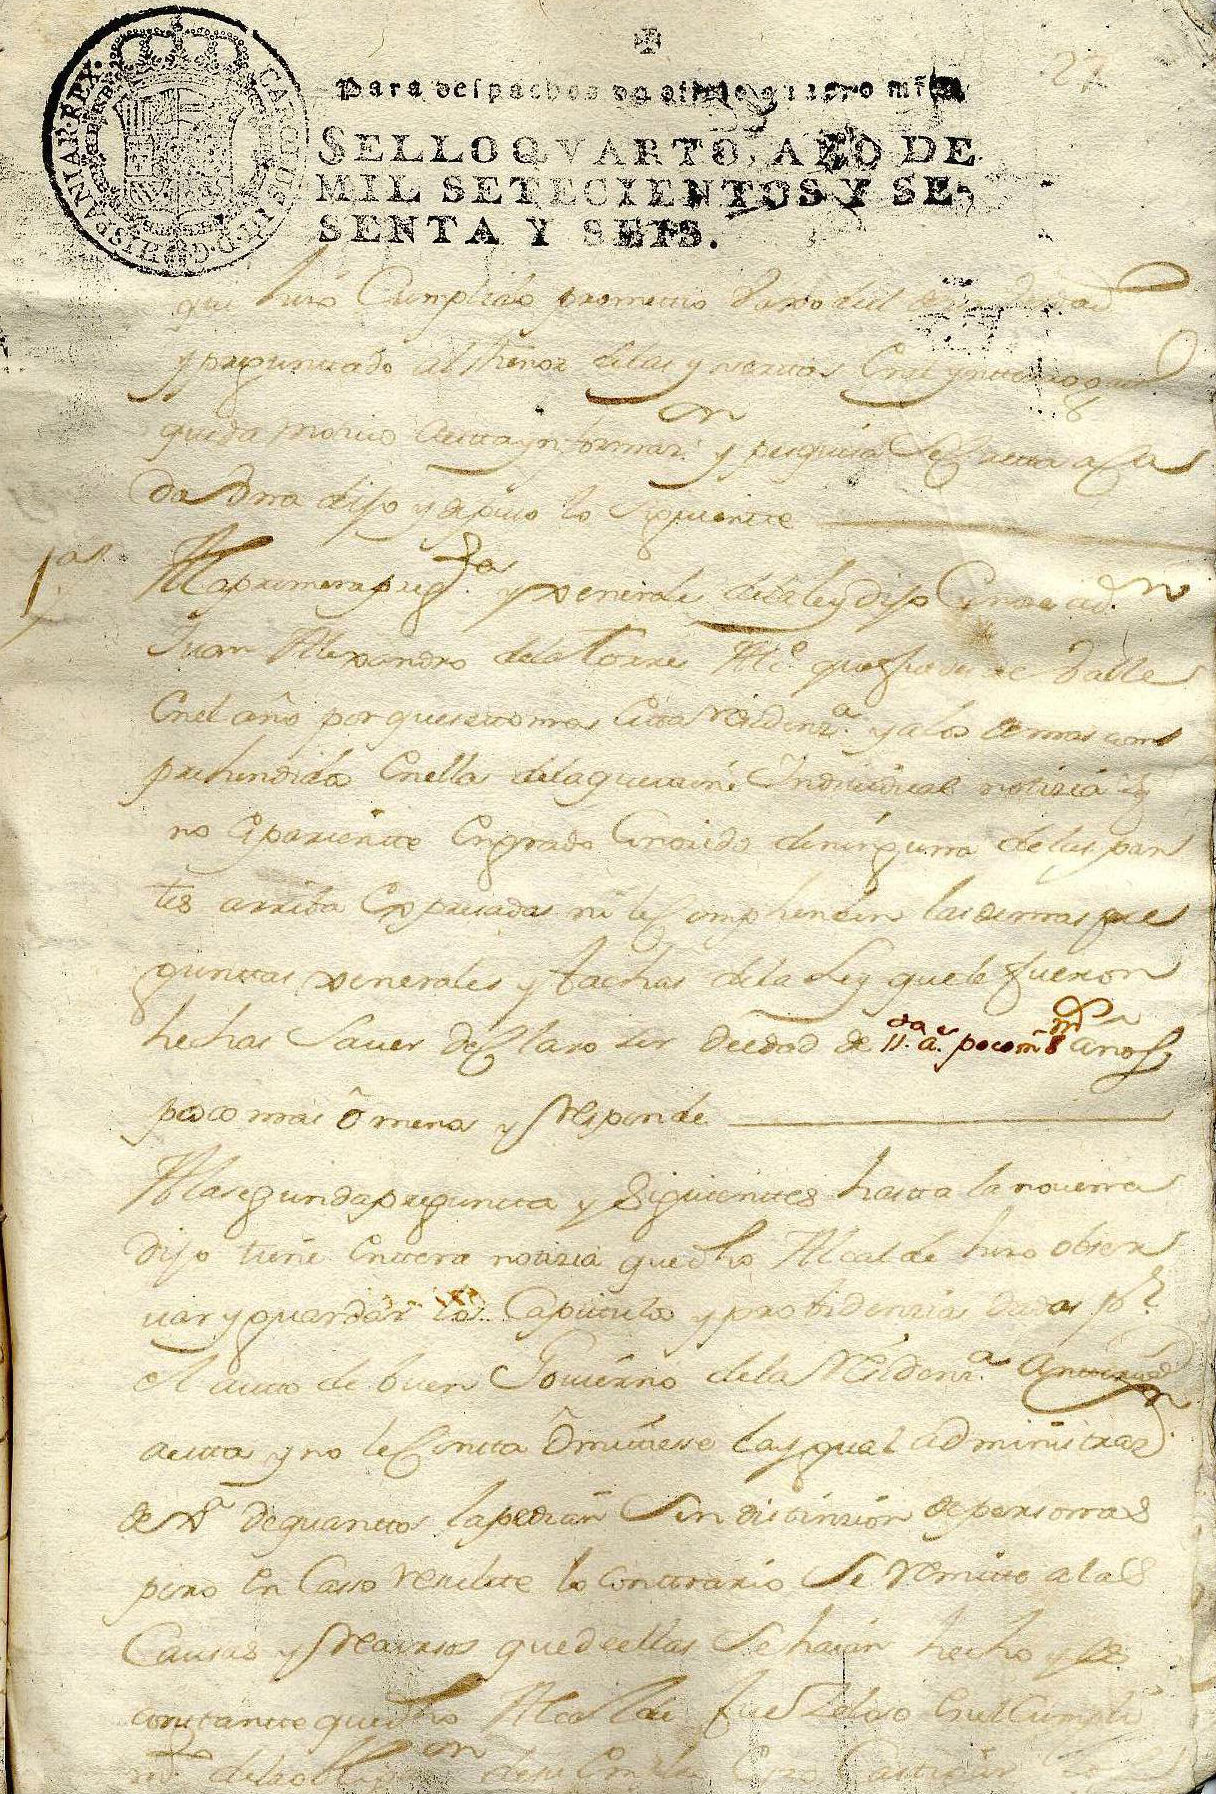 27
Para despachos de oficio quatro mrs
SELLO QVARTO, AÑO DE
MIL SETECIENTOS Y SE-
SENTA Y SEIS.
CAROLUS III D.G. HISPANIAR. REX.
que hizo Cumplirlo prometio vaxo del de verdad
y preguntado al thenor delas ynsertas Enel ynterrogat
queda motivo aesta ynformaz.on y pesquisa Secreta
da dijo y depuso lo siguiente
1.a
Alaprimera preg.ta y xenerales dela ley dijo Conoze a d.n
Juan Alexandro dela Torre Alc.e que fue de este Valle
Enel año por que se toma esta Residenz.a y alos demas com
prehendidos Enella delaque tiene Indiuidual notizia y q
no es pariente En grado Conozido deninguna delas par
tes arriba Expresadas ni le Comprhenden lasdemas pre
guntas xenerales y tachas dela Ley quele fueron
hechas Sauer Declaro ser deedad de años
poco mas ô menos y Responde
Alasegunda pregunta y Siguientes hasta la nouena
Dijo tiene Entera notizia quedho Alcalde hizo obser
uar y guardar los Capitulos y probidenzias dadas p.r
el auto de buen Gouierno dela Residenz.a
aesta y no le Consta ômitiese la ygual administraz.on
de de quantos lapedian Sin distinzion depersonas
pero En Caso resulte lo contrario Se remite alas
Causas y Recursos quedeellas Se haian hecho y es
constante quedho Alcalde fue Zeloso Enel Cumpli
m.to dela